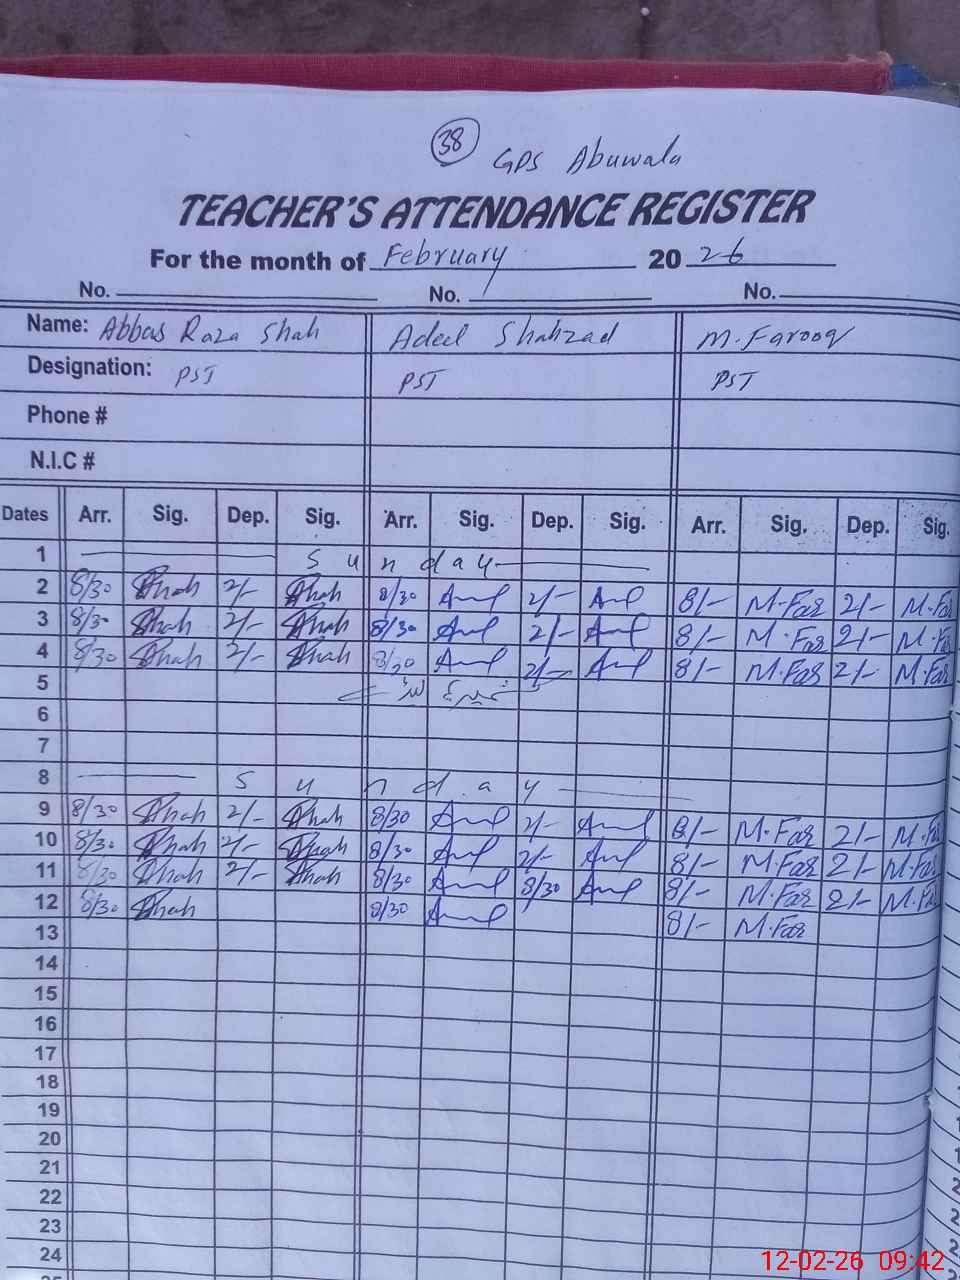 38 GPS Abuwala
TEACHER'S ATTENDANCE REGISTER
For the month of February 2026
No. No. No.
Name: Abbas Raza Shah Adeel Shahzad M. Farooq
Designation: PST PST PST
Phone #
N.I.C #
Dates Arr. Sig. Dep. Sig. Arr. Sig. Dep. Sig. Arr. Sig. Dep. Sig.
1 Sunday
2 8/30 Shah 2/- Shah 8/30 2/- 8/- M.Far 2/- M.Fa
3 8/30 Shah 2/- Shah 8/30 2/- 8/- M.Far 2/- M.Fa
4 8/30 Shah 2/- Shah 8/30 2/- 8/- M.Far 2/- M.Far
5
6
7
8 Sunday
9 8/30 Shah 2/- Shah 8/30 2/- 8/- M.Far 2/- M.Fa
10 8/30 Shah 2/- Shah 8/30 2/- 8/- M.Far 2/- M.Far
11 8/30 Shah 2/- Shah 8/30 8/30 8/- M.Far 2/- M.Fa
12 8/30 Shah 8/30 8/- M.Far
13
14
15
16
17
18
19
20
21
22
23
24
12-02-26 09:42